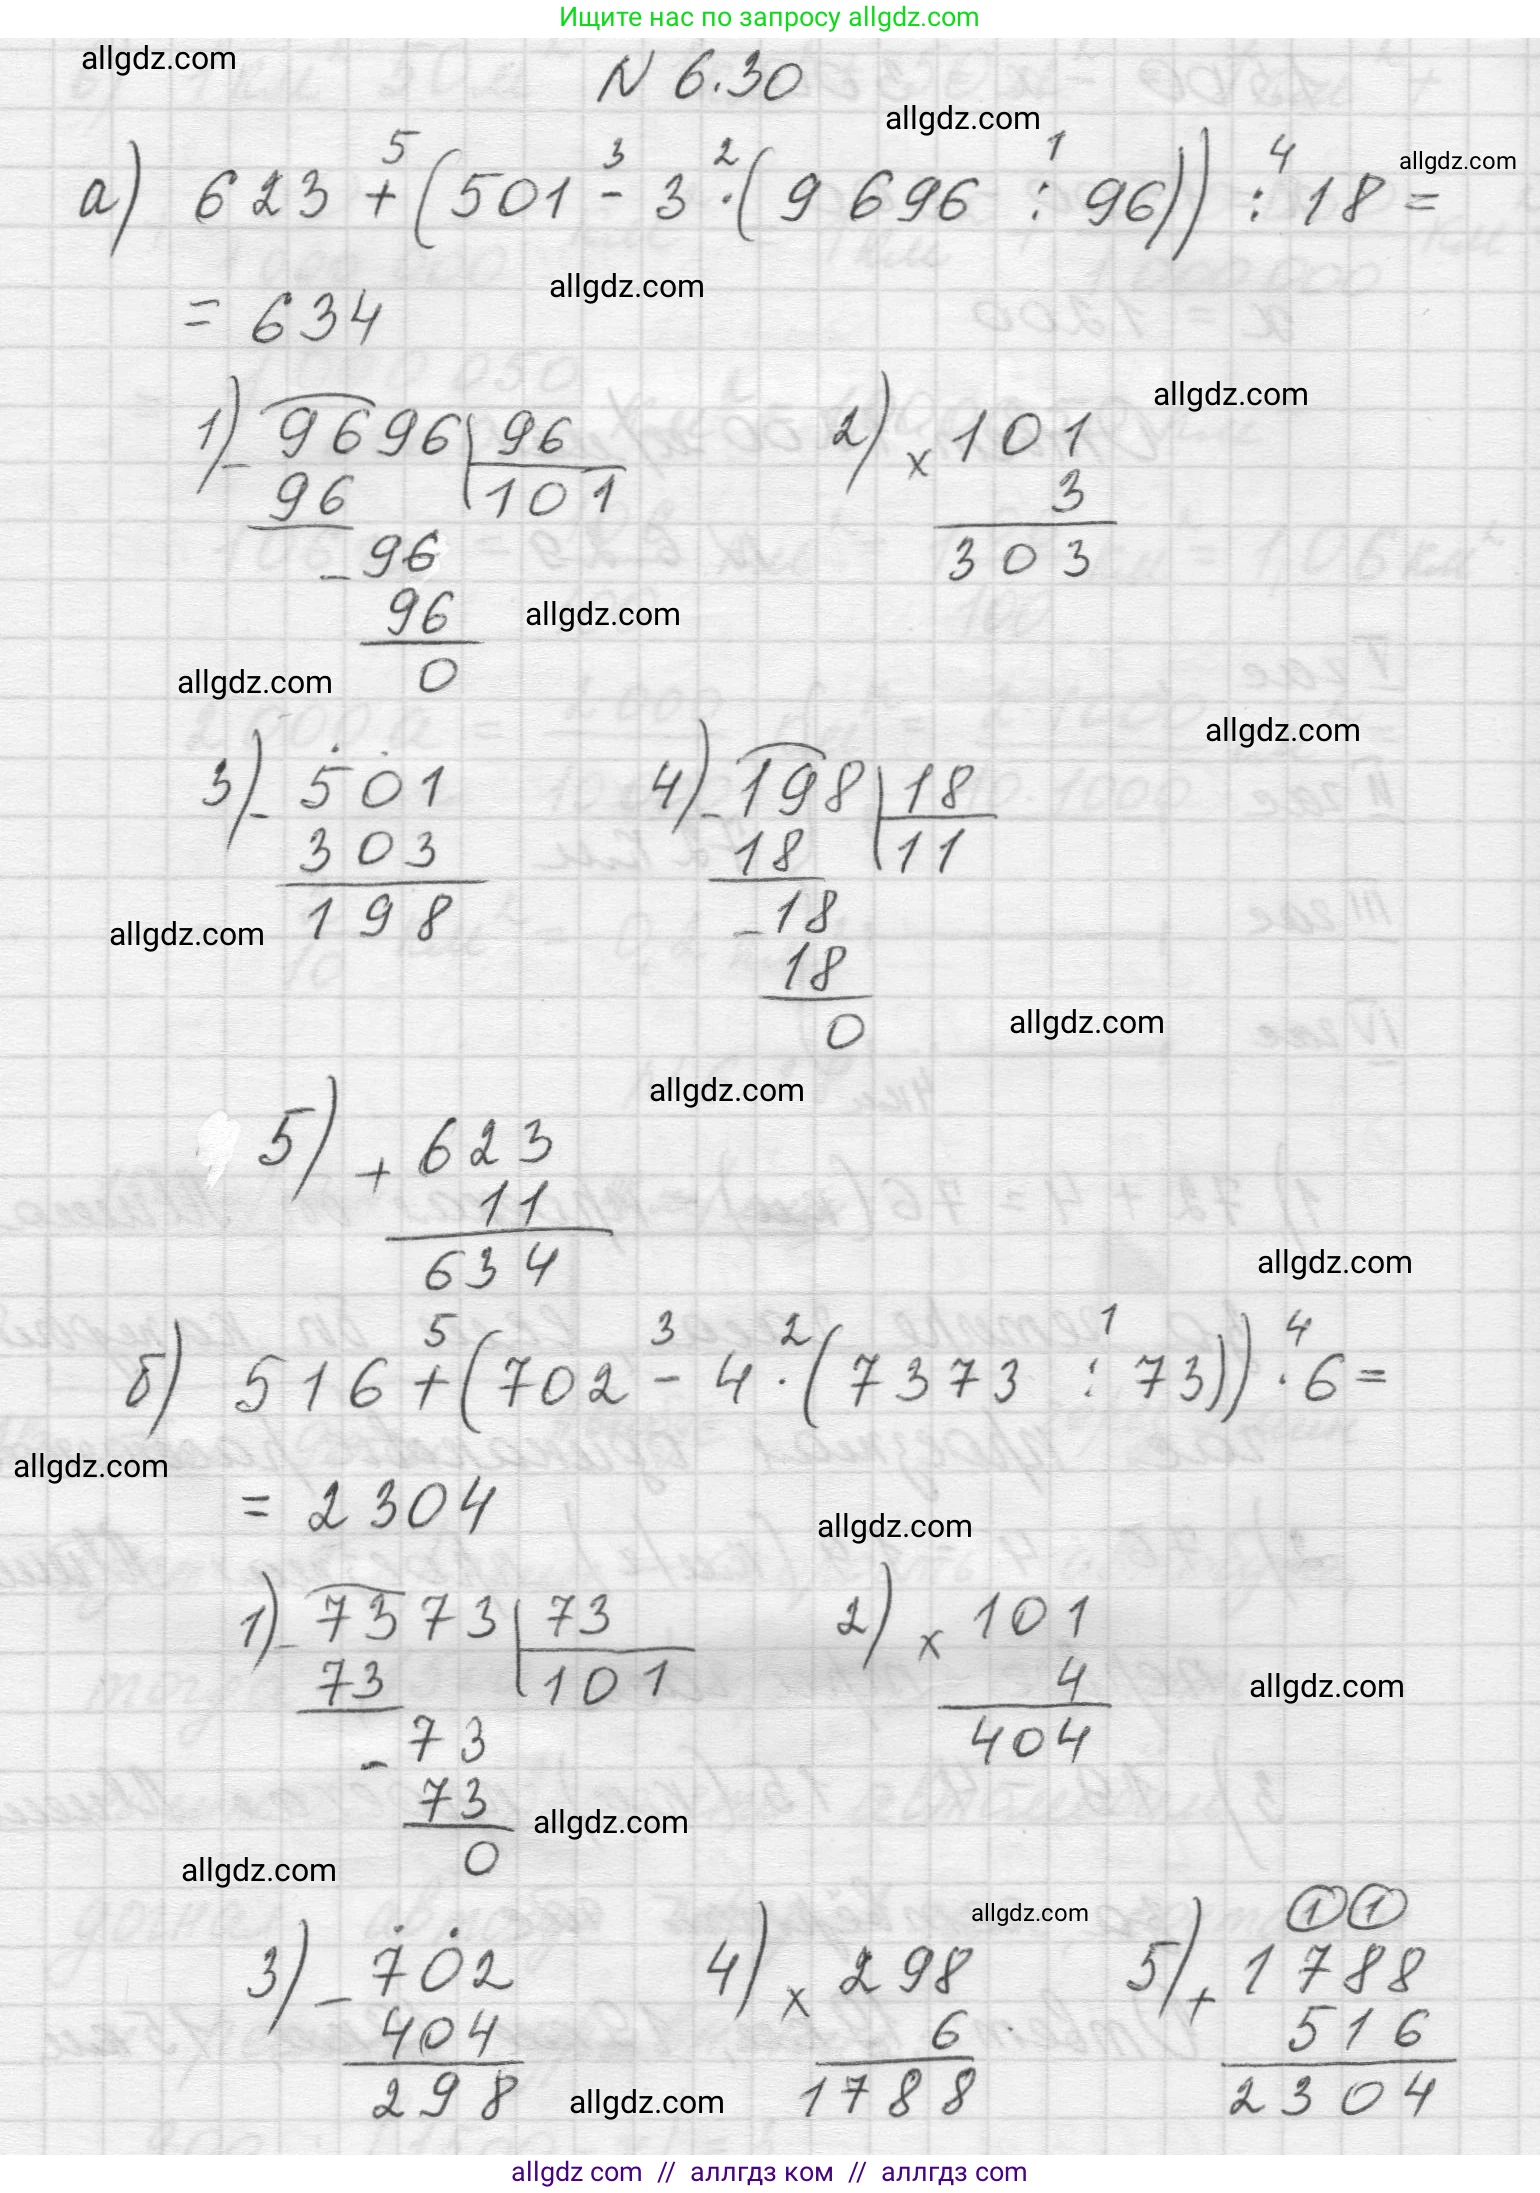 Ищите нас по запросу allgdz.com
allgdz.com
N 6.30
allgdz.com
5 3 2 1 4
allgdz.com
а) 623 + (501 - 3 · (9696 : 96)) : 18 =
allgdz.com
= 634
allgdz.com
1) - 9696 96
96 101
- 96
96
0
2) x 101
3
303
allgdz.com
allgdz.com
allgdz.com
3) - 501
303
198
4) - 198 18
18 11
- 18
18
0
allgdz.com
allgdz.com
allgdz.com
5) + 623
11
634
allgdz.com
5 3 2 1 4
б) 516 + (702 - 4 · (7373 : 73)) · 6 =
allgdz.com
= 2304
allgdz.com
1) - 7373 73
73 101
- 73
73
0
2) x 101
4
404
allgdz.com
allgdz.com
allgdz.com
allgdz.com
3) - 702
404
298
4) x 298
6
1788
1 1
5) + 1788
516
2304
allgdz.com
allgdz com // аллгдз ком // аллгдз com